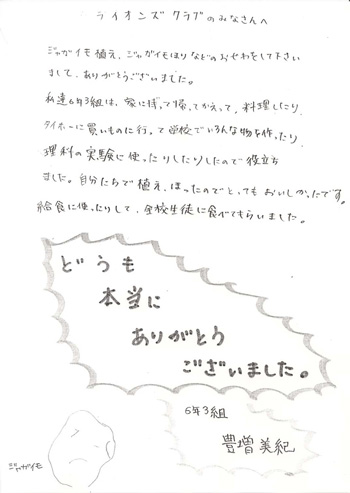 ライオンズクラブのみなさんへ
ジャガイモ植え、ジャガイモほりなどのおせわをして下さい
まして、ありがとうございました。
私達6年3組は、家に持って帰ってかえって、料理したり、
タイホーに買いものに行って学校でいろんな物を作ったり、
理科の実験に使ったりしたりしたので役立ち
ました。自分たちで植え、ほったのでとってもおいしかったです。
給食に使ったりして、全校生徒に食べてもらいました。
どうも
本当に
ありがとう
ございました。
6年3組
豊増美紀
ジャガイモ